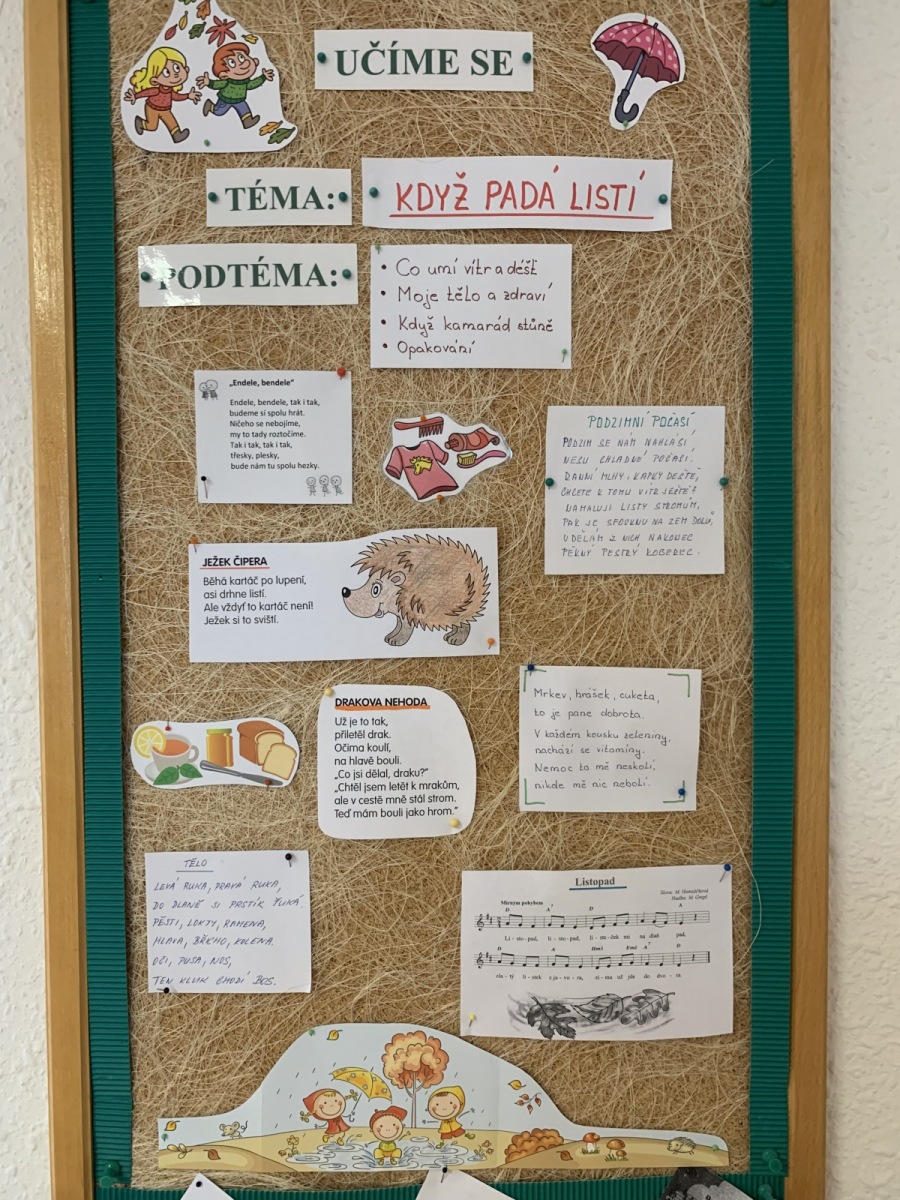 UČÍME SE
TÉMA:
KDYŽ PADÁ LISTÍ
PODTÉMA:
• Co umí vítr a déšť
• Moje tělo a zdraví
• Když kamarád stůně
• Opakování
„Endele, bendele"
Endele, bendele, tak i tak,
budeme si spolu hrát.
Ničeho se nebojíme,
my to tady roztočíme.
Tak i tak, tak i tak,
třesky, plesky,
bude nám tu spolu hezky.
PODZIMNÍ POČASÍ
PODZIM SE NÁM NAHLÁSÍ
NESU CHLADNÉ POČASÍ.
RANNÍ MLHY, KAPKY DEŠTĚ,
CHCETE K TOMU VÍTR JEŠTĚ?
NAMALUJI LISTY STROMŮM,
PAK JE SFOUKNU NA ZEM DOLŮ,
UDĚLÁM Z NICH NAKONEC
PĚKNÝ PESTRÝ KOBEREC.
JEŽEK ČIPERA
Běhá kartáč po lupení,
asi drhne listí.
Ale vždyť to kartáč není!
Ježek si to sviští.
DRAKOVA NEHODA
Už je to tak,
přiletěl drak.
Očima koulí,
na hlavě bouli.
„Co jsi dělal, draku?"
„Chtěl jsem letět k mrakům,
ale v cestě mně stál strom.
Teď mám bouli jako hrom."
Mrkev, hrášek, cuketa,
to je pane dobrota.
V každém kousku zeleniny,
nachází se vitamíny.
Nemoc ta mě neskolí,
nikde mě nic nebolí.
TĚLO
LEVÁ RUKA, PRAVÁ RUKA,
DO DLANĚ SI PRSTÍK ŤUKÁ.
PĚSTI, LOKTY, RAMENA,
HLAVA, BŘICHO, KOLENA.
OČI, PUSA, NOS,
TEN KLUK CHODÍ BOS.
Listopad
Slova: M
Hudba: M
Mírným pohybem
D A7 D A
Li - sto - pad, li - sto - pad, li - sto - ček mi na dlaň pad,
D A Hmi Emi A7 D
zla - tý lí - stek z ja - vo - ra, zi - ma už jde do dvo - ra.